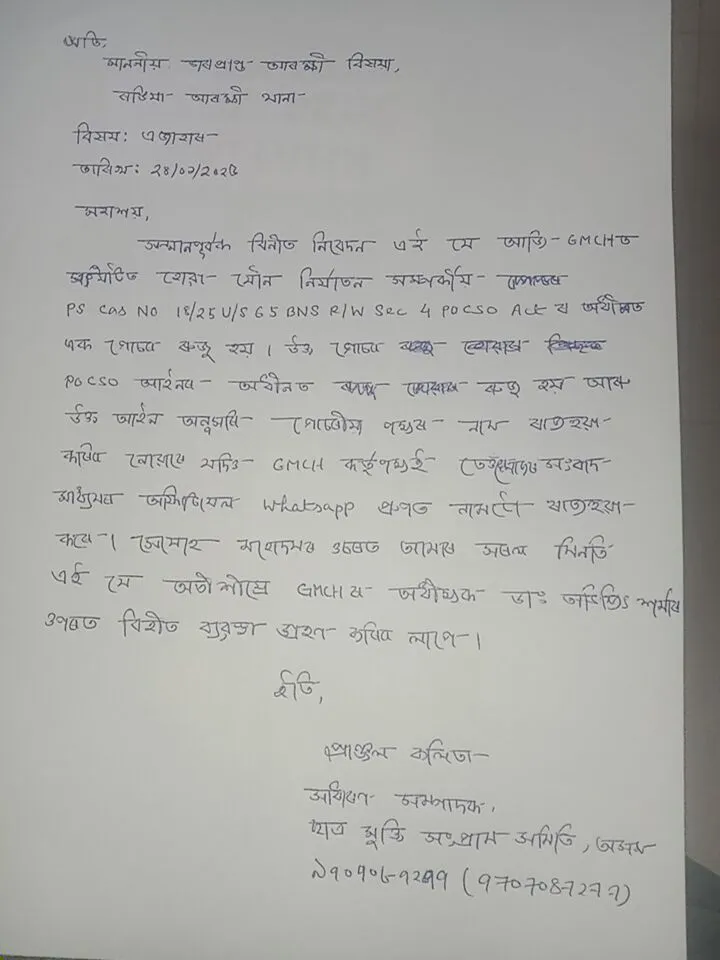 প্ৰতি,
মাননীয় ভাৰপ্ৰাপ্ত আৰক্ষী বিষয়া,
আৰক্ষী থানা
বিষয়: এজাহাৰ
তাৰিখ: ২৪/০২/২০২৫
মহাশয়,
সন্মানপূৰ্বক বিনীত নিবেদন এই যে আজি GMCHত
সংঘটিত হোৱা যৌন নিৰ্যাতন সম্পৰ্কীয়
PS Cas NO 18/25 U/S 65 BNS R/W Sec 4 POCSO Act ৰ অধীনত
এক গোচৰ ৰুজু হয়। উক্ত গোচৰ
POCSO আইনৰ অধীনত ৰুজু হয় আৰু
উক্ত আইন অনুসৰি পক্ষৰ নাম ব্যৱহাৰ
কৰিব নোৱাৰে যদিও GMCH কৰ্তৃপক্ষই তেওঁলোকৰ সংবাদ
মাধ্যমৰ অফিচিয়েল Whatsapp গ্ৰুপত নামটো ব্যৱহাৰ
কৰে। সেয়েহে মহোদয়ৰ ওচৰত আমাৰ সবল মিনতি
এই যে অতি শীঘ্ৰে GMCH ৰ অধীক্ষক ডাঃ অভিজিৎ শৰ্মাৰ
ওপৰত বিহীত ব্যৱস্থা গ্ৰহণ কৰিব লাগে।
ইতি,
প্ৰাঞ্জল কলিতা
সম্পাদক,
ছাত্ৰ মুক্তি সংগ্ৰাম সমিতি, অসম
৯৭০৭০৮৭২৭৭ (9707087277)